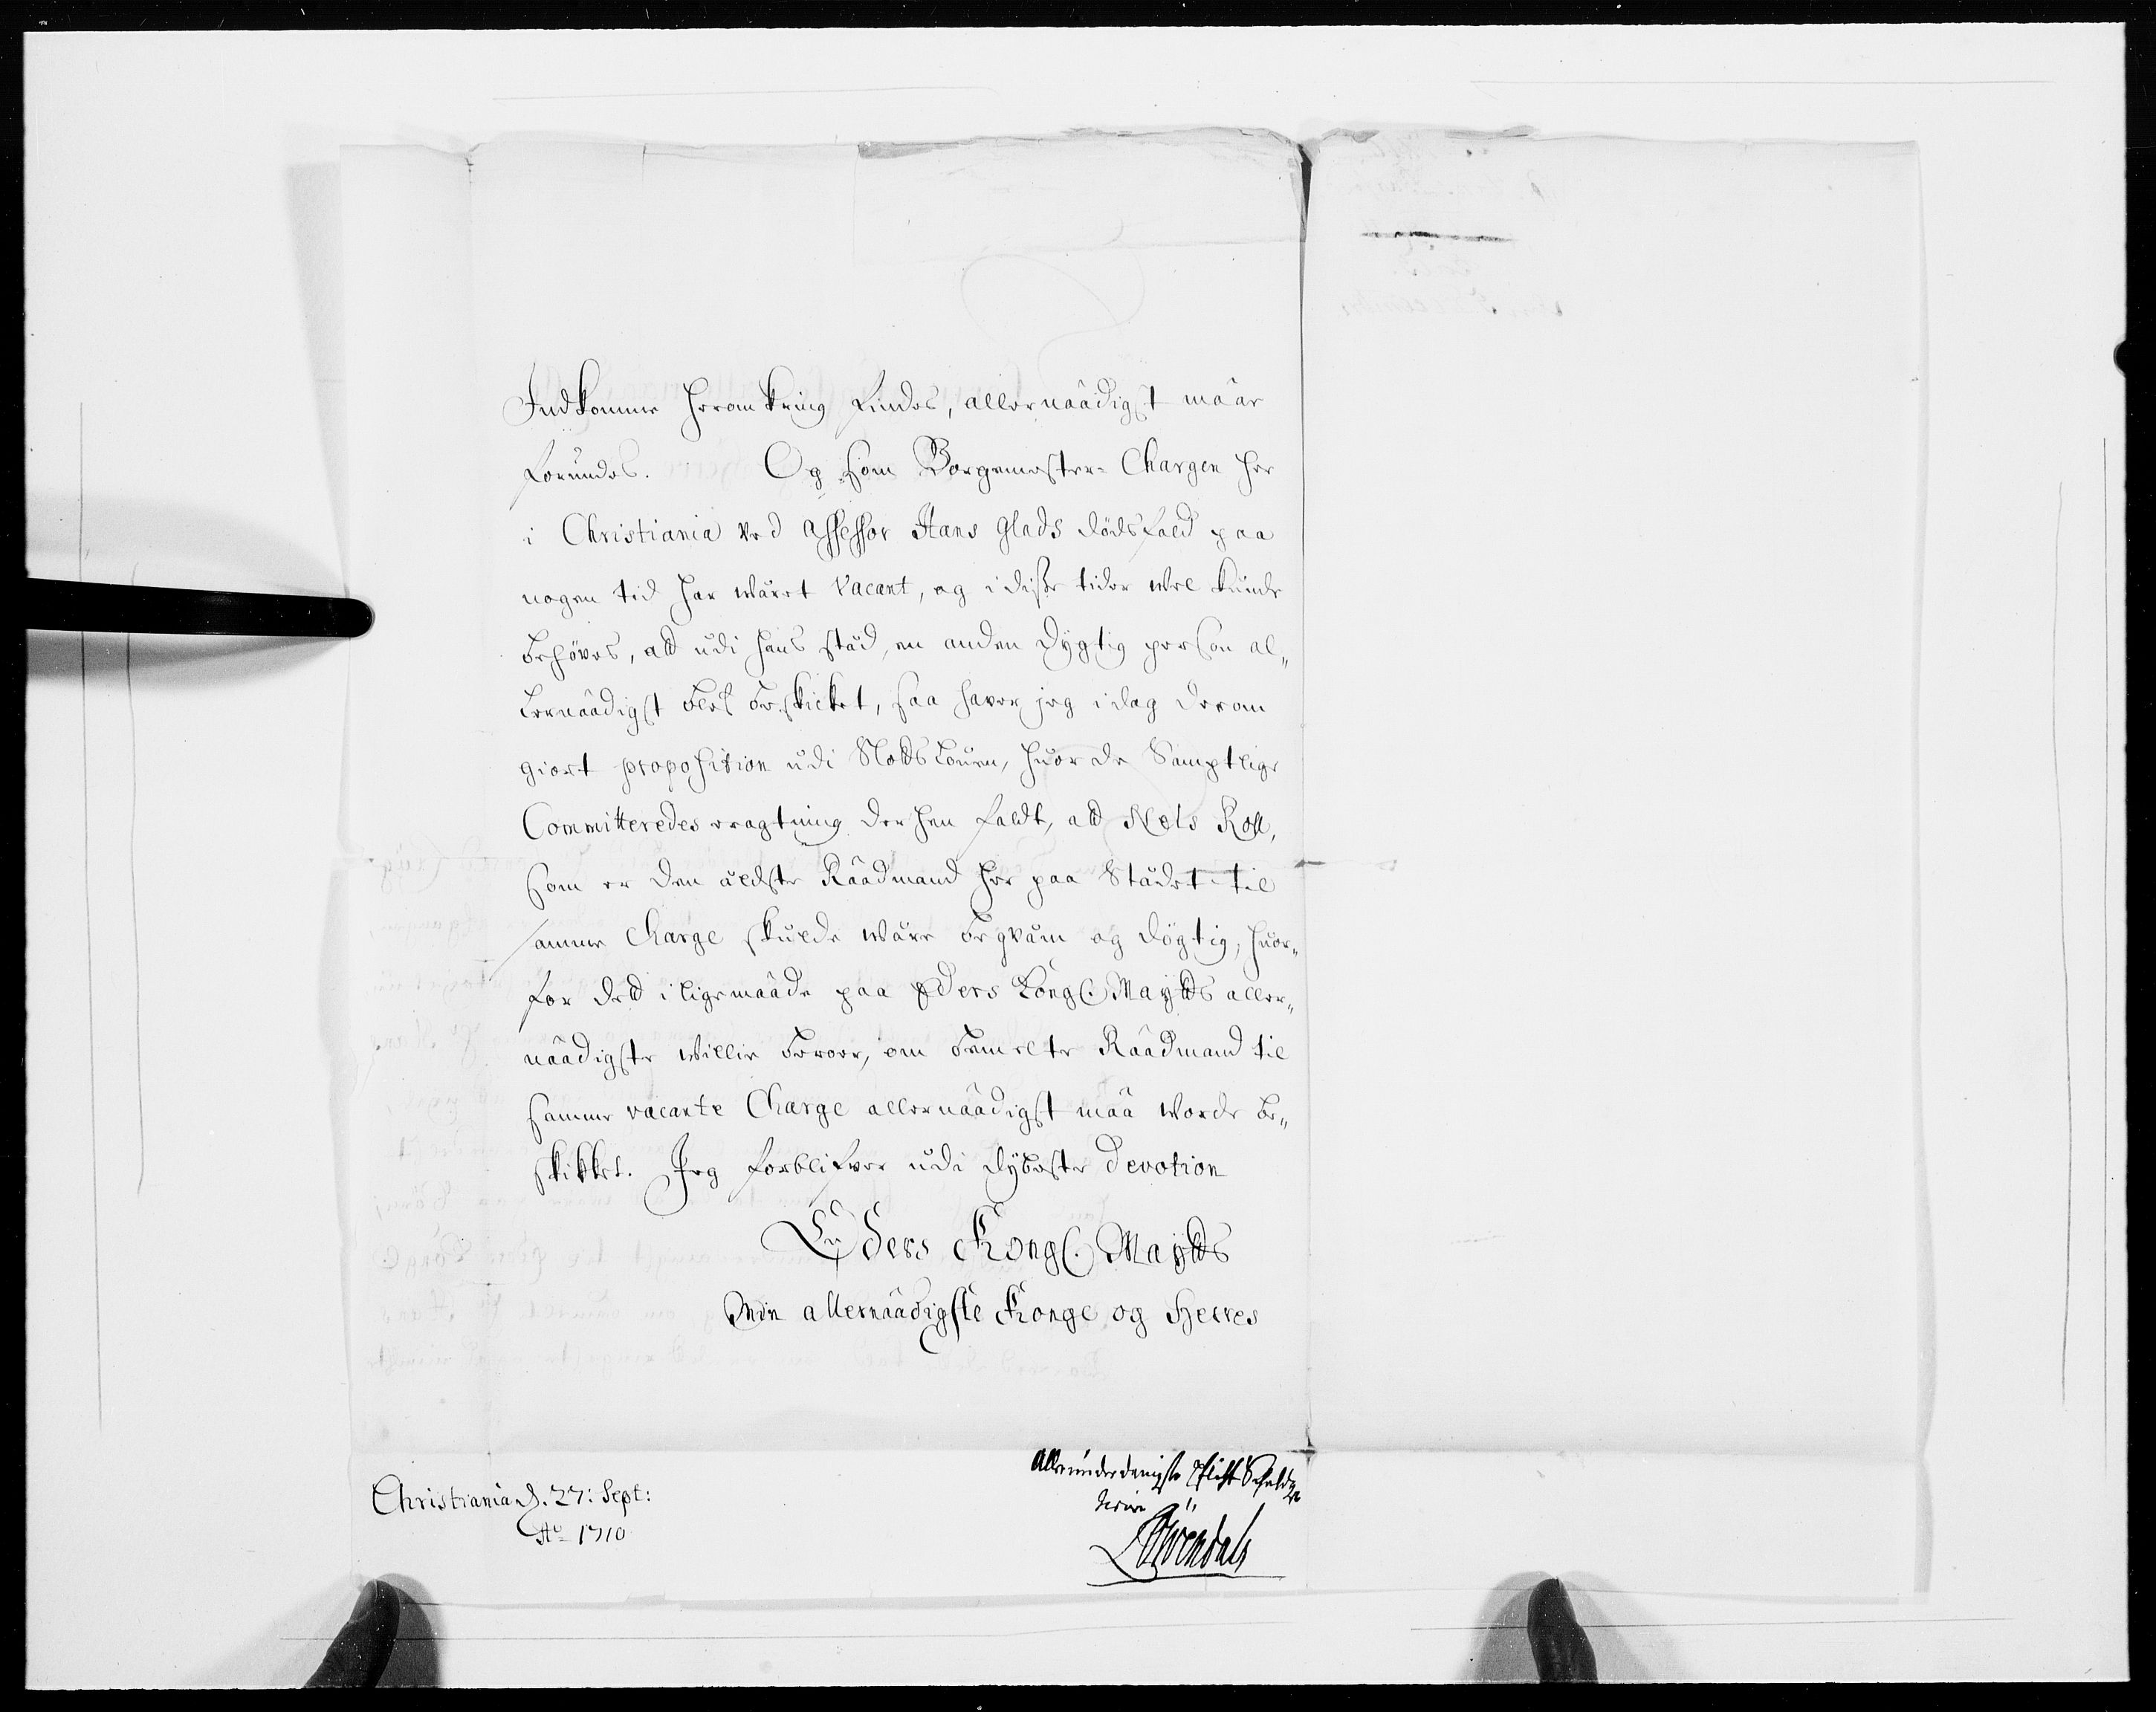 Indkomme heromkring findes, allernaadigst maae
forundes. Og som Borgemester-Chargen her
i Christiania ved Assessor Hans Glads dödsfald paa
nogen tid har wäret vacant, og i disse tider wel kunde
behöves, ald udi hans städ, en anden dygtig person al„
lernaadigst blef beskicket, saa haver jeg i dag derom
giort proposition udi Slodsloven, huor de Samptlige
Committeredes eragtning der hen faldt, ald Nels Roll,
som er den äldste Raadmand her paa Städet til
samme Charge skulde wäre beqväm og dygtig, huor„
for deld i ligemaade paa Eders Kongl. Maytts aller„
naadigste Willie beroer, om bemelte Raadmand til
samme vacante Charge allernaadigst maa worde be„
skikket. Jeg forblifver udi dybeste devotion
Eders Kongl. Maytts
Min allernaadigste Konge og Herres
Christiania d. 27: Sept:
Ao 1710
Allerunderdanigste Pflicht Schuldige
tiener
Löwendals